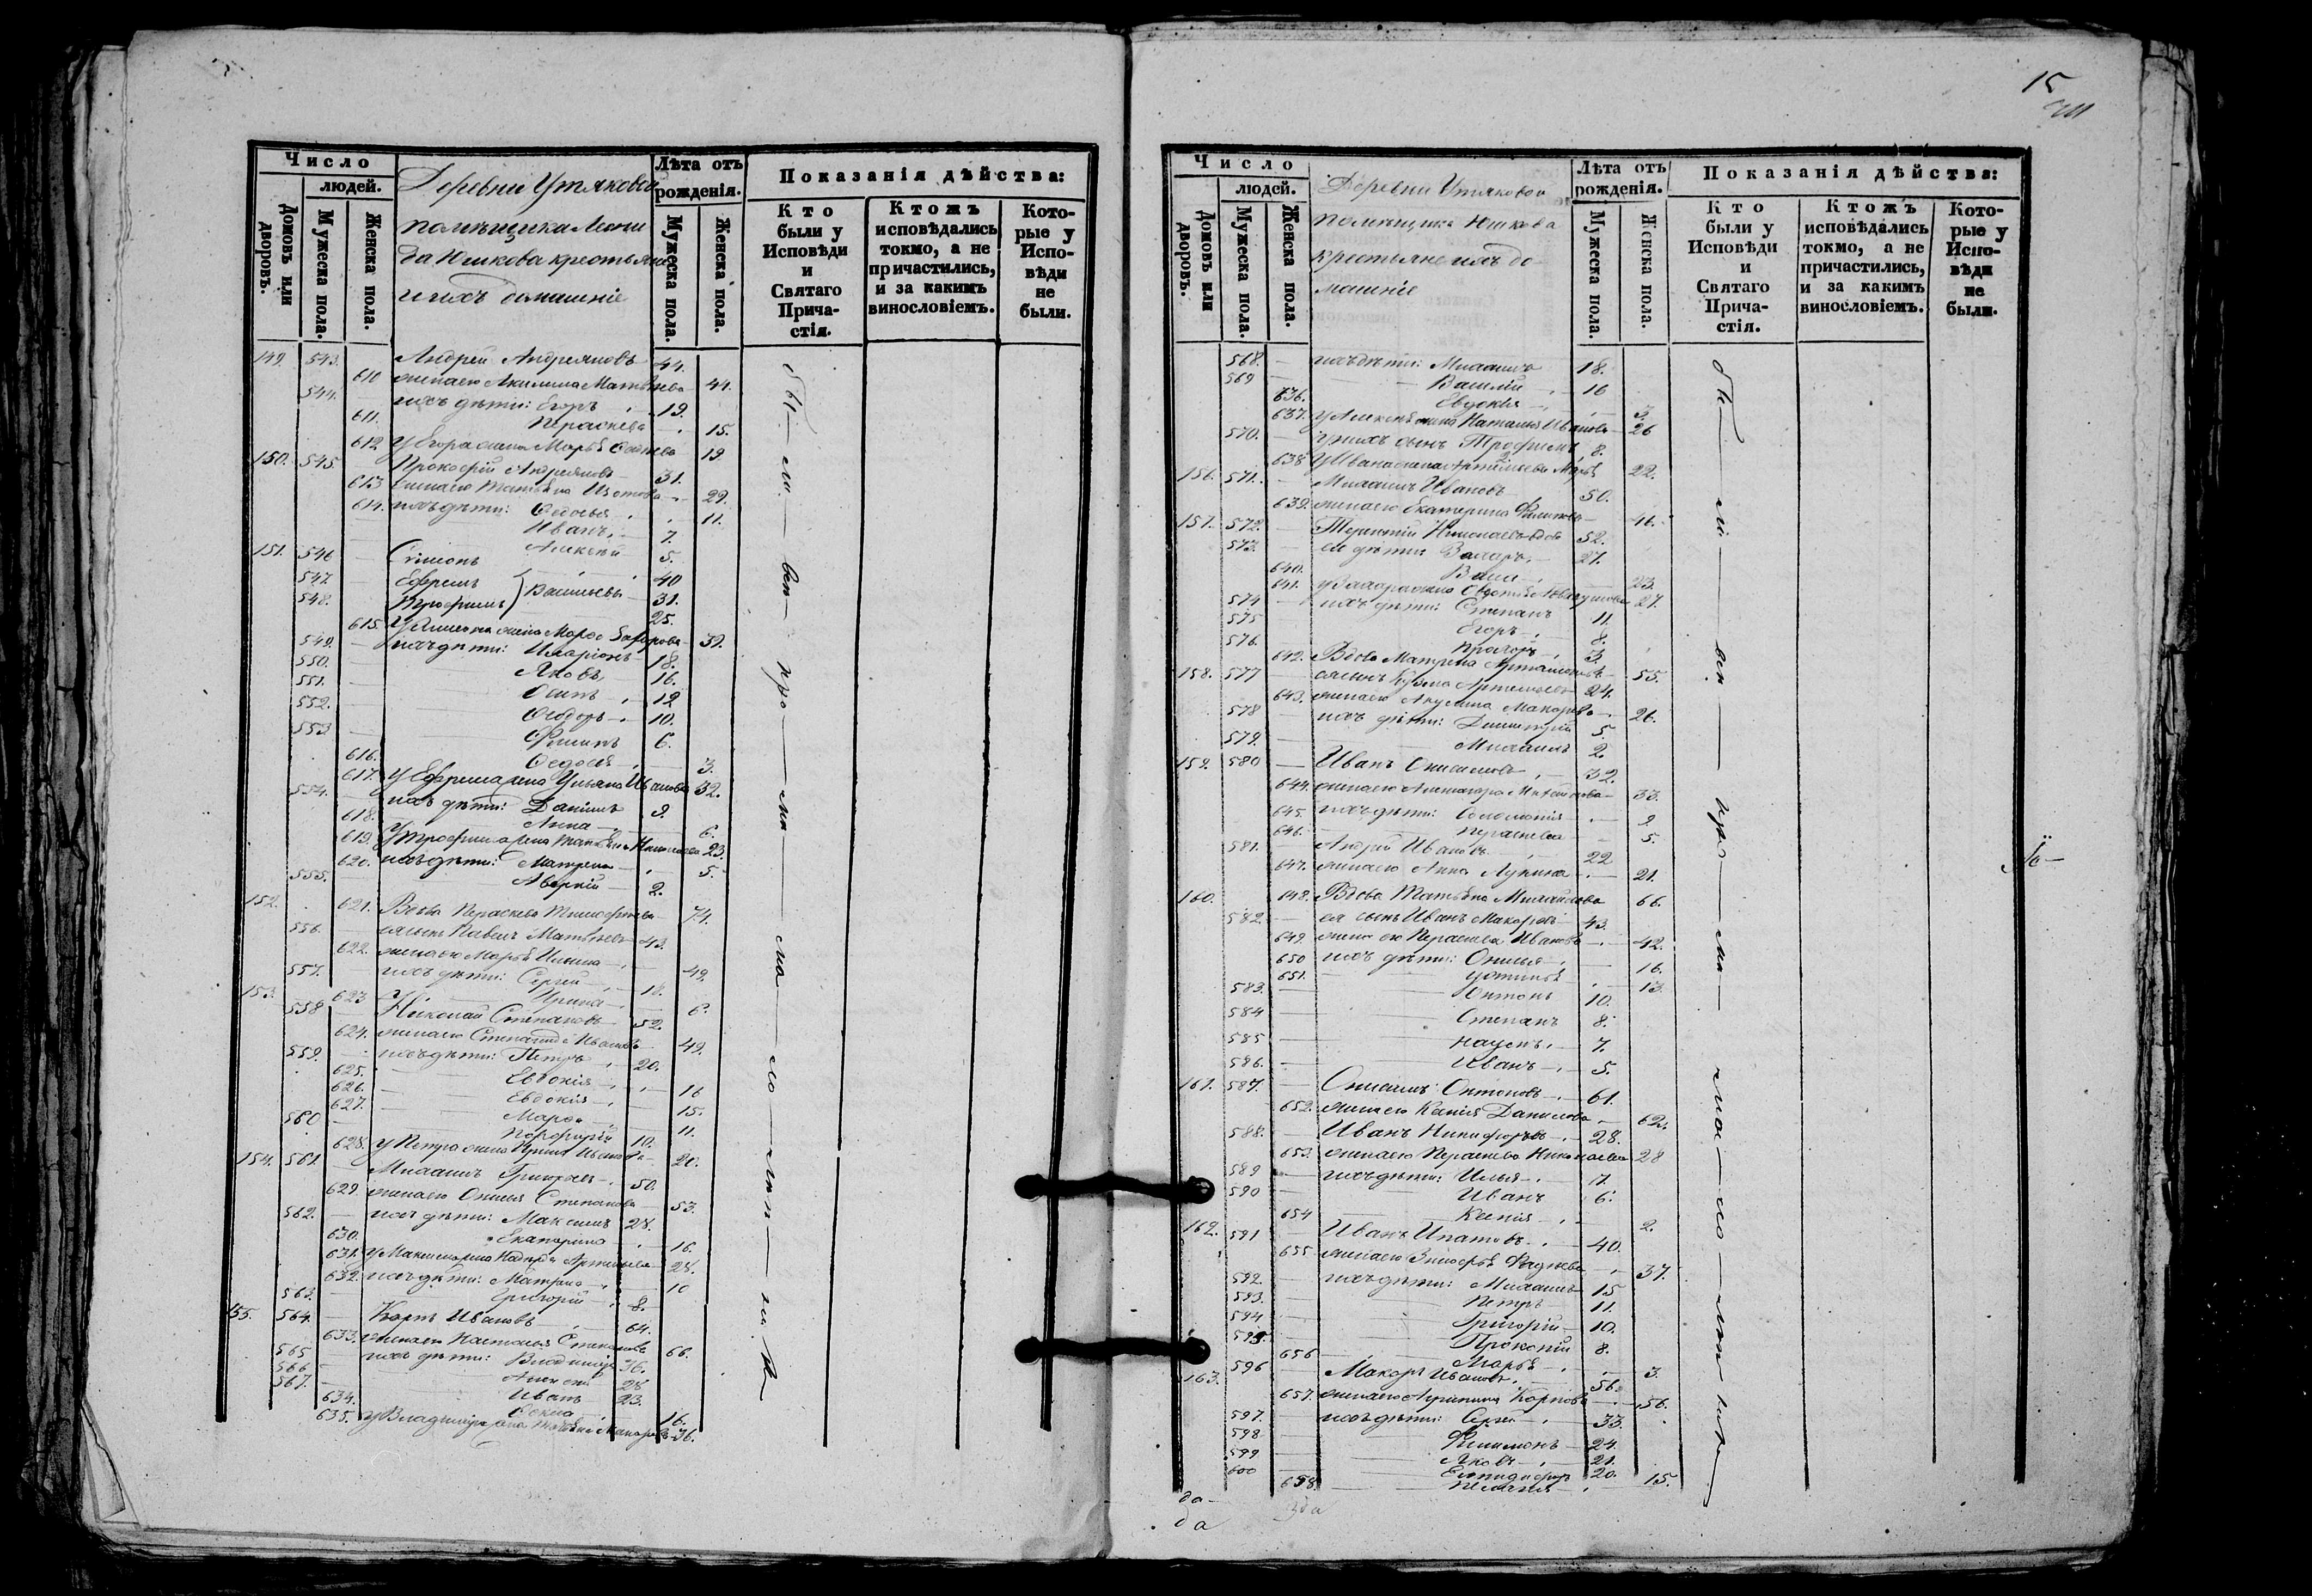 15
Число
людей.
Домовъ или дворовъ.
Мужеска пола.
Женска пола.
Деревни Утяковой
помѣщика Леони
да Юшкова крестьяне
и ихъ домашніе
Лѣта отъ рожденія.
Мужеска пола.
Женска пола.
Показанія дѣйства:
Кто были у Исповѣди и Святаго Прича-стія.
Ктожъ исповѣдались токмо, а не причастились, и за какимъ винословіемъ.
Кото-рые у Испо-вѣди не были.
149. 543. Андрей Андреяновъ 44.
610 жена его Акилина Матвѣева 44.
544. ихъ дѣти: Егоръ 19.
611. Параскева 15.
612. У Егора жена Марья 19
150. 545. Прокофій Андреяновъ 31.
613 жена его Татьяна Изотова 29.
614. ихъ дѣти: Ѳедосья 11.
Иванъ 7.
Алексѣй 5.
151. 546 Симіонъ 40
547. Ефремъ Васильевы 31.
548. Трофимъ 25.
615. жена Марѳа 39.
549. ихъ дѣти: Иларіонъ 18.
550. Яковъ 16.
551. Осипъ 12
552. Ѳеодоръ 10.
553 Филипъ 6.
616. Ѳедосья 3.
617. У Ефрема жена Ульяна Иванова 32.
554. ихъ дѣти: Даніилъ 9.
618. Анна 6.
619. У Трофима жена Татьяна 23.
620. ихъ дѣти: Матрена 5.
555. Аверкій 2.
152. 621. Вдова Параскева Тимофѣева 74.
556. ея сынъ Павелъ Матвѣевъ 43.
622. жена его Марья Ильина 49.
557. ихъ дѣти: Сергѣй 18.
623 Ирина 6.
153. 558 Николай Степановъ 52.
624. жена его Степанида Иванова 49.
559. ихъ дѣти: Петръ 20.
625. Евдокія 16
626. Евдокія 15.
627. Марѳа 11.
560 Порфирій 10.
628. У Петра жена Ирина 20.
154. 561. Михаилъ Григорьевъ 50.
629 жена его Степанова 53.
562. ихъ дѣти: Максимъ 28.
630. Екатерина 16.
631. У Максима жена Артемьева 28.
632. ихъ дѣти: Матрена 10
563. Григорій 8.
155. 564. Карпъ Ивановъ 64.
633. жена его Наталья Степанова 66.
565 ихъ дѣти: Владиміръ 36.
566 Алексѣй 28
567. Иванъ 23.
634. Ѳекла 16.
635. У Владиміра жена Татьяна Макарова 36.
Число
людей.
Домовъ или дворовъ.
Мужеска пола.
Женска пола.
Деревни Утяковой
помѣщика Юшкова
крестьяне и ихъ до
машніе
Лѣта отъ рожденія.
Мужеска пола.
Женска пола.
Показанія дѣйства:
Кто были у Исповѣди и Святаго Прича-стія.
Ктожъ исповѣдались токмо, а не причастились, и за какимъ винословіемъ.
Кото-рые у Испо-вѣди не были.
568. ихъ дѣти: Михаилъ 18.
569 Василій 16
636. Евдокія 3.
637. У Алексѣя жена Наталья Иванова 26
570. у нихъ сынъ Трофимъ 8.
638 У Ивана жена Артемьева 22.
156. 571. Михаилъ Ивановъ 50.
639. жена его Екатерина Филипова 46.
157. 572. Терентій Николаевъ 52.
573. дѣти: Захаръ 27.
640. 23.
641. 27.
574 ихъ дѣти: Степанъ 11.
575 Егоръ 8.
576. Прохоръ 3.
642. Вдова Матрена 55.
158. 577 ея сынъ Кузма Артемьевъ 24.
643. жена его Акулина Макарова 26.
578 ихъ дѣти: Димитрій 5
579. Михаилъ 2.
159. 580 Иванъ Онисимовъ 32.
644. жена его Александра Михайлова 33.
645. ихъ дѣти: Соломонія 9
646. Параскева 5.
581. Андрей Ивановъ 22
647. жена его Анна Лукина 21.
160. 648. Вдова Татьяна Михайлова 66.
582. ея сынъ Иванъ Макаровъ 43.
649. жена его Параскева Иванова 42.
650 ихъ дѣти: 16.
651. Устинья 13
583. Антонъ 10.
584 Степанъ 8.
585 Наумъ 7.
586. Иванъ 5.
161. 587. Онисимъ Антоновъ 61.
652. жена его Ксенія Данилова 62.
588. Иванъ Никифоровъ 28.
653. жена его Параскева Николаева 28
589 ихъ дѣти: Илья 7.
590 Иванъ 6.
654 Ксенія 2.
162. 591 Иванъ Ипатовъ 40.
655 жена его Ѳадѣева 37.
592. ихъ дѣти: Михаилъ 15
593. Петръ 11.
594 Григорій 10.
595. Прокопій 8.
656 Марья 3.
163. 596 Макаръ Ивановъ 56.
657. жена его Карпова 56.
597. ихъ дѣти: Сергѣй 33.
598 Филимонъ 24.
599 Яковъ 21.
600 Елпидифоръ 20.
658. Пелагея 15.